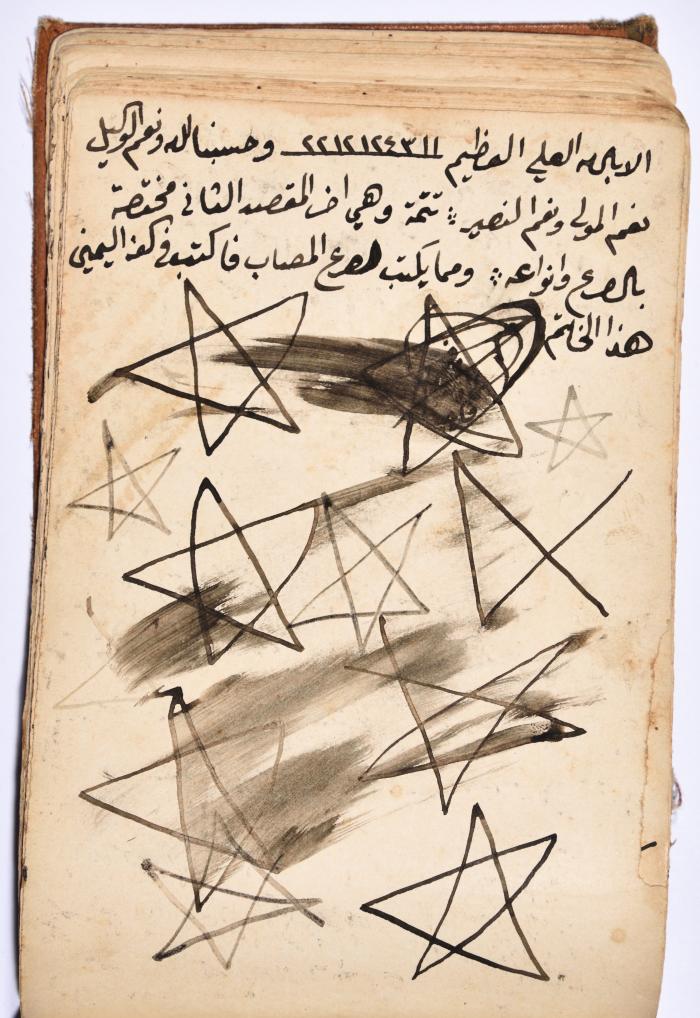 الا بالله العلي العظيم ٢٢١٢١٢٤٣١١ وحسبنا الله ونعم الوكيل
نعم المولى ونعم النصير تتمة وهي اخر المقصد الثاني مختصة
بالصرع وانواعه ومما يكتب لصرع المصاب فاكتب في كفه اليمنى
هذا الخاتم